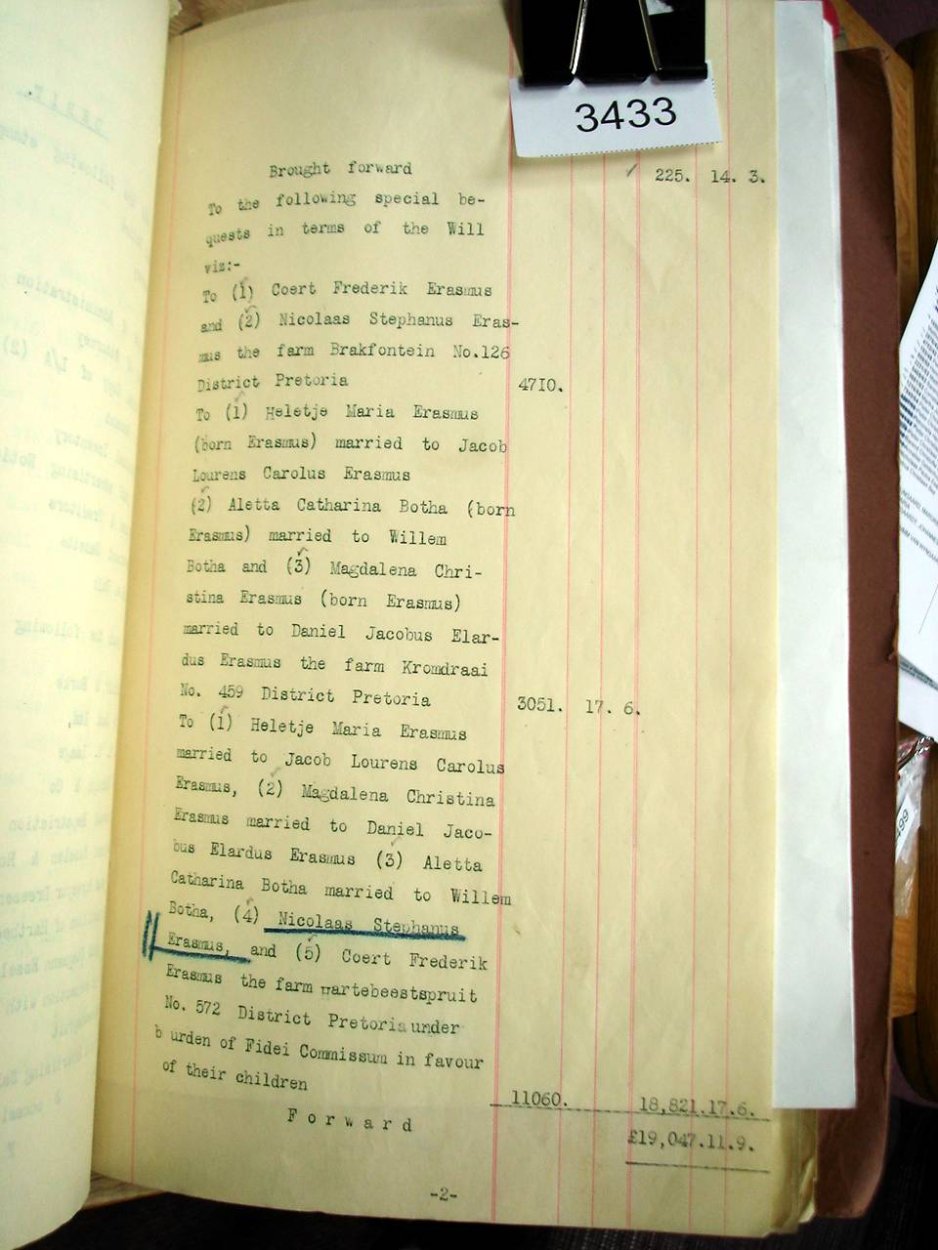 3433
Brought forward 225. 14. 3.
To the following special be-
quests in terms of the Will
viz:-
To (1) Coert Frederik Erasmus
and (2) Nicolaas Stephanus Eras-
mus the farm Brakfontein No.126
District Pretoria 4710.
To (1) Heletje Maria Erasmus
(born Erasmus) married to Jacob
Lourens Carolus Erasmus
(2) Aletta Catharina Botha (born
Erasmus) married to Willem
Botha and (3) Magdalena Chri-
stina Erasmus (born Erasmus)
married to Daniel Jacobus Elar-
dus Erasmus the farm Kromdraai
No. 459 District Pretoria 3051. 17. 6.
To (1) Heletje Maria Erasmus
married to Jacob Lourens Carolus
Erasmus, (2) Magdalena Christina
Erasmus married to Daniel Jaco-
bus Elardus Erasmus (3) Aletta
Catharina Botha married to Willem
Botha, (4) Nicolaas Stephanus
Erasmus, and (5) Coert Frederik
Erasmus the farm Hartebeestspruit
No. 572 District Pretoria under
burden of Fidei Commissum in favour
of their children 11060. 18,821.17.6.
Forward £19,047.11.9.
-2-